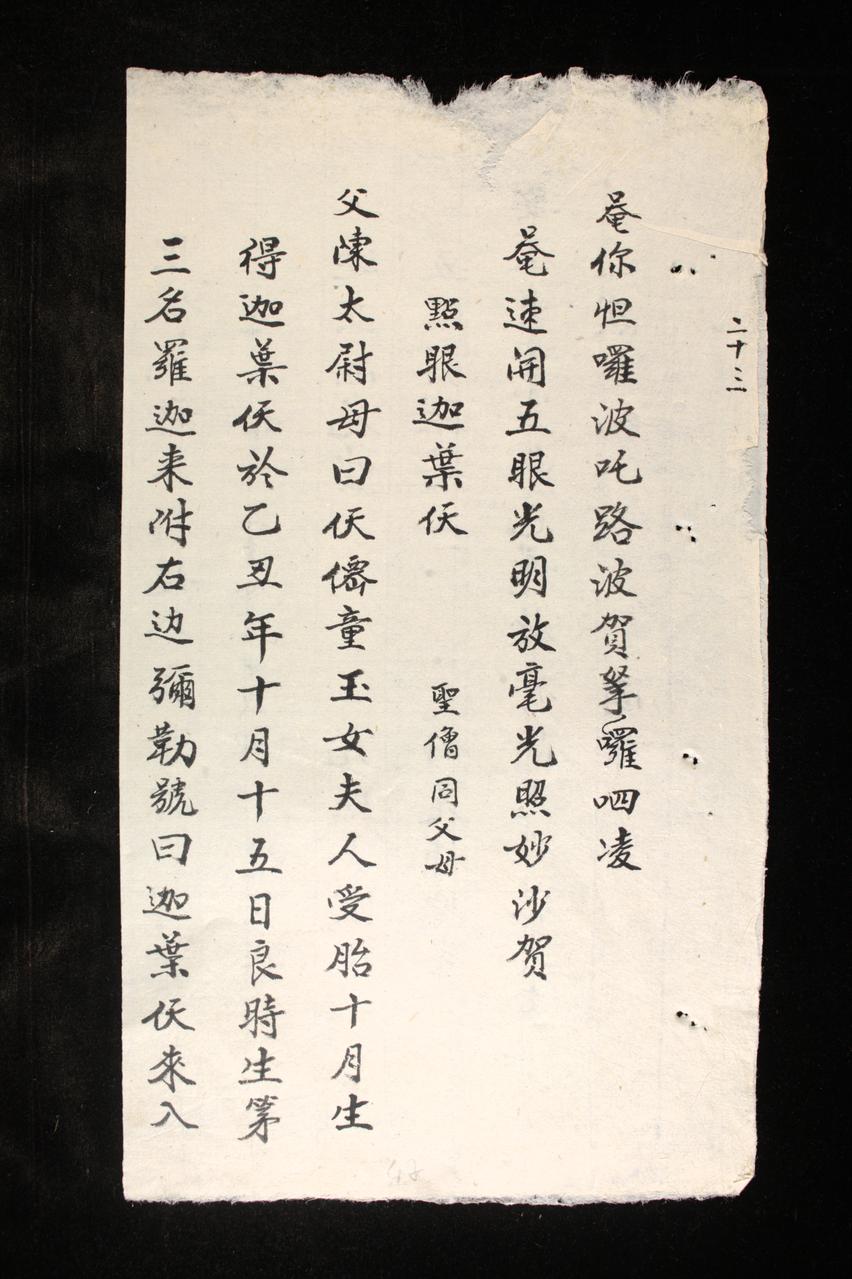 二十三
唵你怛囉波吒路波賀拏囉呬凌
唵速開五眼光明放毫光照妙沙賀
點眼迦葉仸　聖僧同父母
父陳太尉母曰仸僊童玉女夫人受胎十月生
得迦葉仸於乙丑年十月十五日良時生第
三名羅迦来附右边彌勒號曰迦葉仸來入